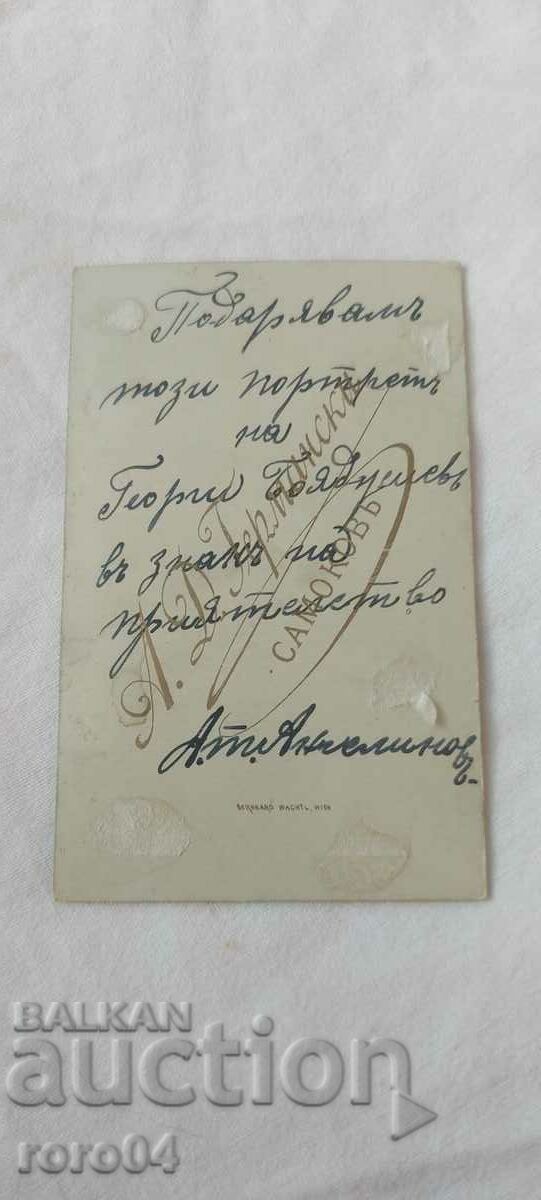 Подарявамъ
този портретъ
на
Георги
въ знакъ на
приятелство
А. Д. Германски
САМОКОВЪ
BERNHARD WACHTL, WIEN
BALKAN
auction
roro04